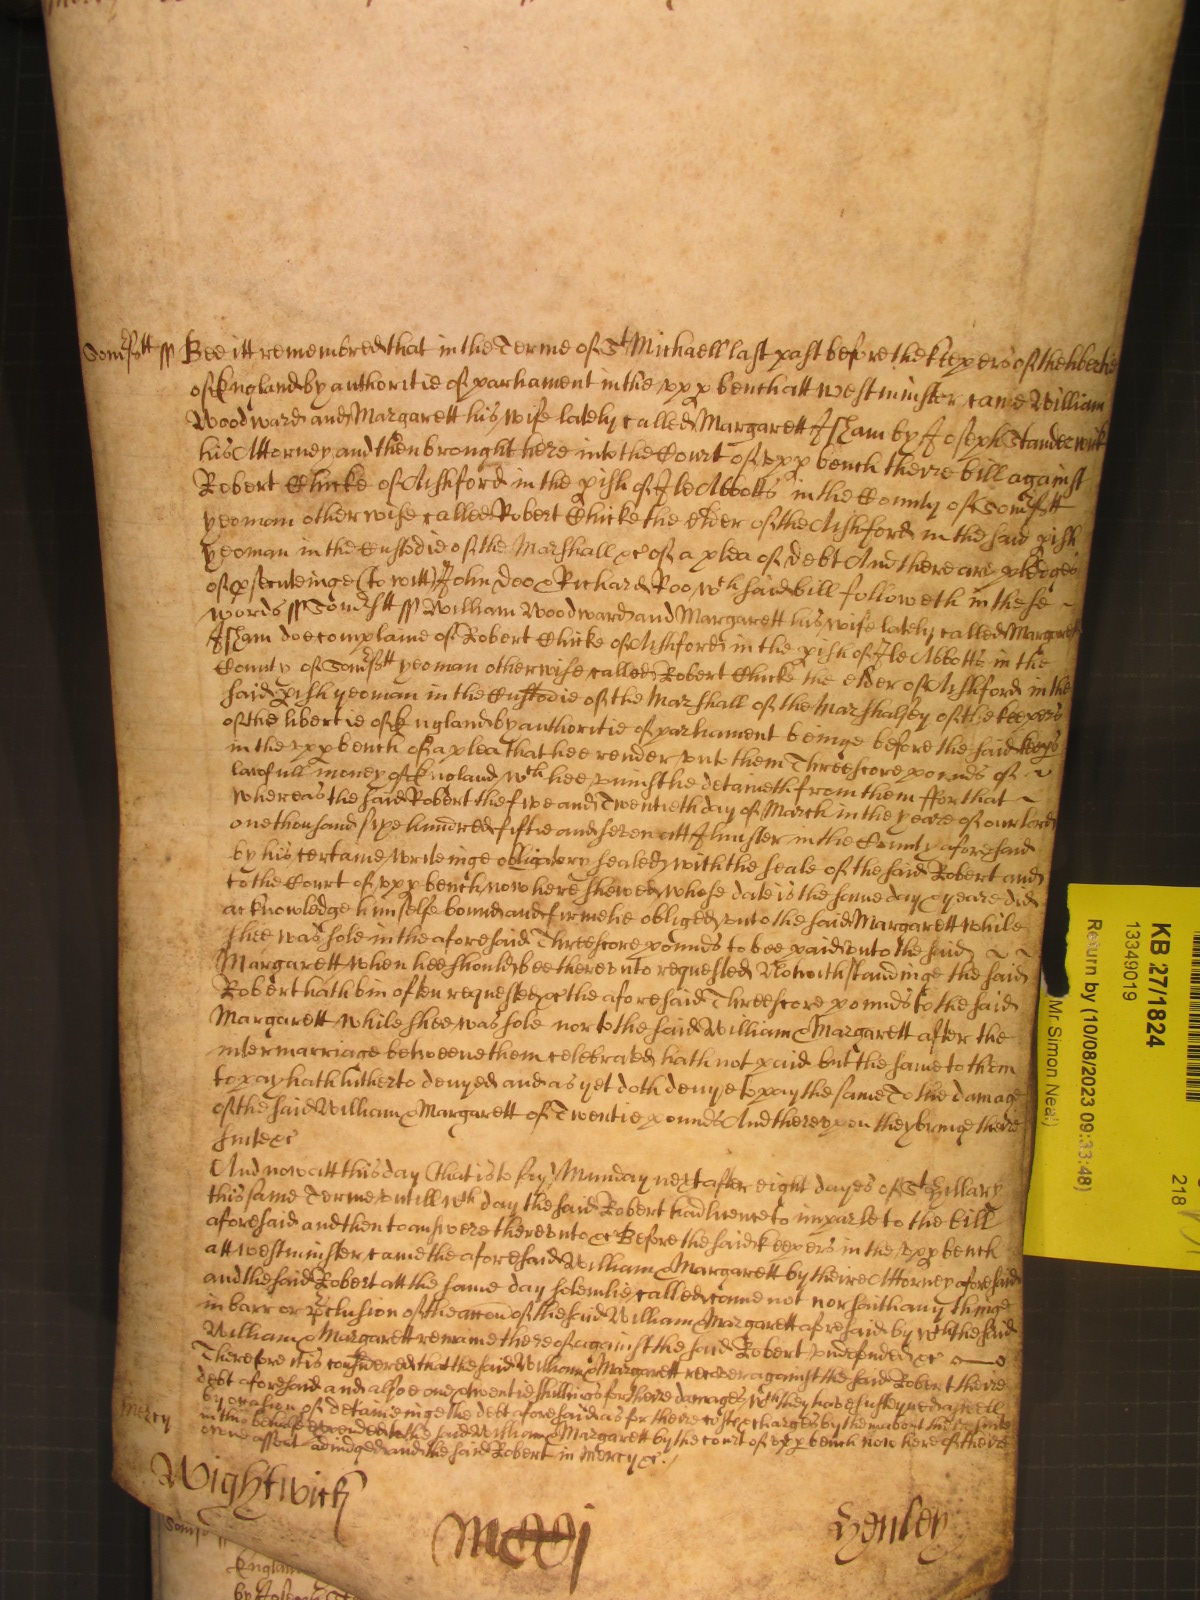 Som~sett ss Bee itt remembred that in the Terme of St Michaell last past before the Keepers of the libertie
of England by authoritie of parliament in the vpp bench att westminster came William
Woodward and Margarett his wife lately called Margarett Isham by Joseph Standerwick
his Attorney and then brought here into the Court of vpp bench theire bill against
Robert Chicke of Ashford in the pish of Ile Abbotts in the County of Som~sett
yeoman otherwise called Robert Chicke the elder of the Ashford in the said pish
yeoman in the Custodie of the Marshall &c of a plea of debt And there are pledges
of psecuteinge (to witt) John Doo & Richard Roo wch said bill followeth in these
words ss Som~sett ss William Woodward and Margarett his wife lately called Margarett
Isham doe complaine of Robert Chicke of Ashford in the pish of Ile Abbotts in the
County of Som~sett yeoman otherwise called Robert Chicke the elder of Ashford in the
said pish yeoman in the Custodie of the Marshall of the Marshalsey of the keepers
of the libertie of England by authoritie of parliament beinge before the said keeps
in the vpp bench of a plea that hee render vnto them Threescore pounds of
lawfull money of England wch hee vniustlie detaineth from them ffor that
whereas the said Robert the five and Twentieth day of March in the yeare of our lord
one thousand sixe hundred fiftie and seven att Ilminster in the County aforesaid
by his certaine writeinge obligatory sealed with the seale of the said Robert and
to the Court of vpp bench now here shewed whose date is the same day & yeare did
acknowledge himselfe bound and firmelie obliged vnto the said Margarett while
shee was sole in the aforesaid Threescore pounds to bee paid vnto the said
Margarett when hee should bee therevnto requested Notwithstandinge the said
Robert hath bin often requested &c the aforesaid Threescore pounds to the said
Margarett while shee was sole nor to the said William & Margarett after the
intermarriage betweene them celebrated hath not paid but the same to them
to pay hath hitherto denyed and as yet doth denye to pay the same To the damage
of the said William & Margarett of Twentie pounds And therevpon they bringe theire
suite &c
And now att this day (that is to say) Munday next after eight dayes of St Hillary
this same Terme vntill wch day the said Robert had licence to imparle to the bill
aforesaid and then to answere therevnto &c Before the said keepers in the vpp bench
att westminster came the aforesaid William & Margarett by theire Attorney aforesaid
and the said Robert att the same day solemlie called came not nor saith any thinge
in barr or pclusion of the accon of the said William & Margarett aforesaid by wch the said
William & Margarett remaine thereof against the said Robert vndefended &c
Therefore itt is considered that the said William & Margarett recover against the said Robert theire
debt aforesaid and alsoe one & twentie shillings for theire damages wch they have susteyned aswell
by occasion of detaineinge the debt aforesaid as for theire costs & charges by them about theire suite
in this behalfe expended to the said William & Margarett by the court of vpp bench now here of theire
owne assent adiudged and the said Robert in mercy &c
Mercy
Wightwick
Henley
Som~s ss
England
by Joseph
KB 27/1824
13349019
218
Return by (10/08/2023 09:33:48)
Mr Simon Neal)